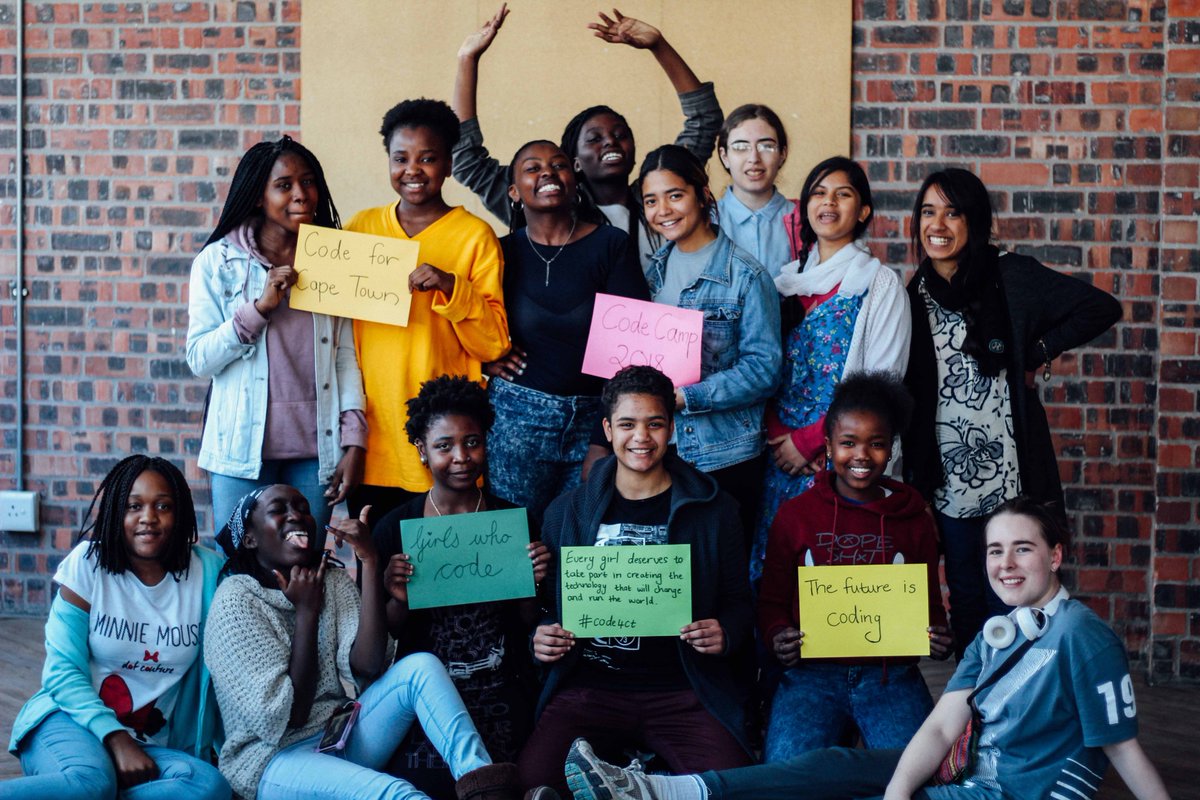 Code for
Cape Town
Code Camp
2018
Girls who
code
Every girl deserves to
take part in creating the
technology that will change
and run the world.
#code4ct
The future is
coding
MINNIE MOUSE
dot couture
DOPE
SH*T
19